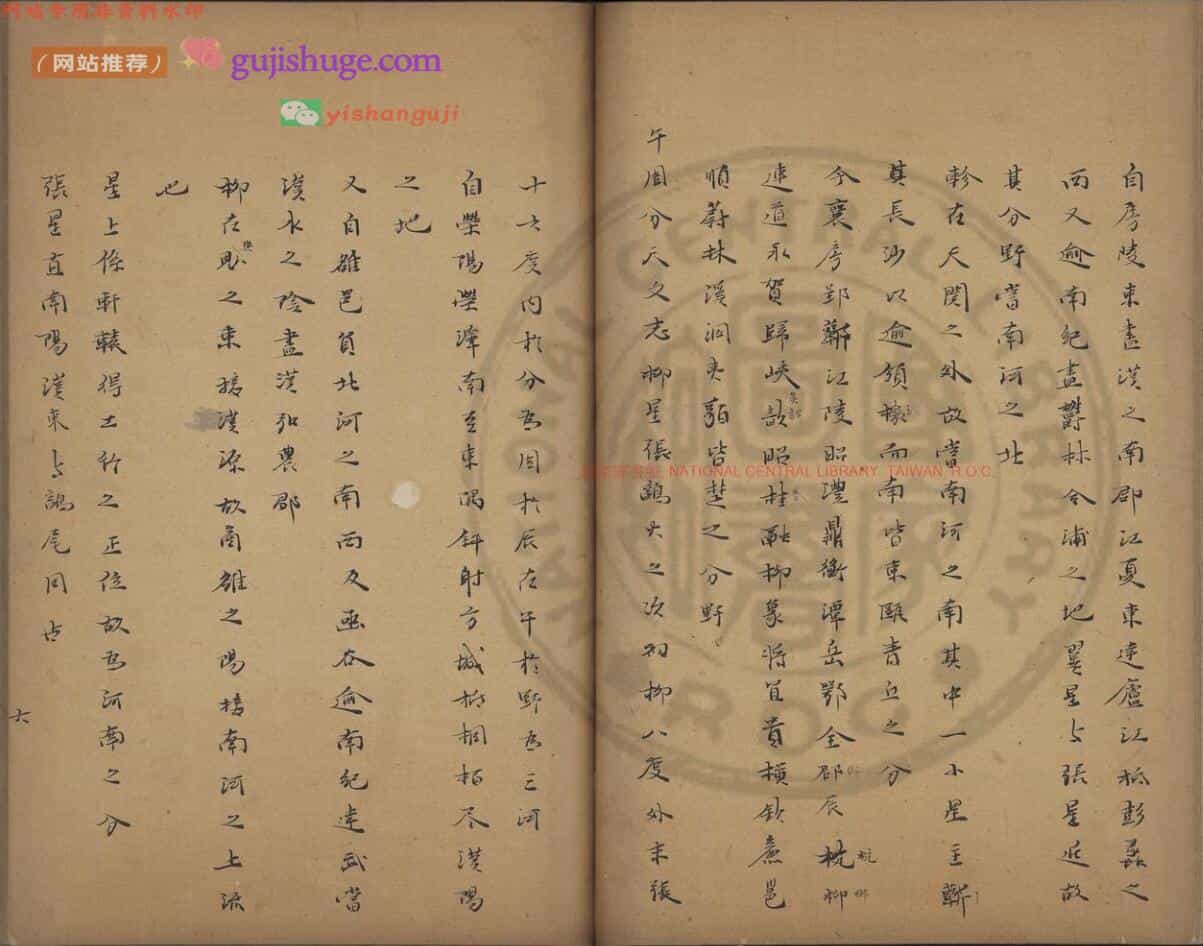 网站专用非资料水印
(网站推荐)
gujishuge.com
yishanguji
NATIONAL CENTRAL LIBRARY, TAIWAN (R.O.C.)
自房陵東盡漢之南郡江夏東達廬江杭彭蠡之
西又逾南紀盡欝林合浦之地翼星与張星近故
其分野當南河之北
軫在天関之外故當南河之南其中一小星主
其長沙以逾領而南皆東甌青丘之分
今襄房郢江陵昭澧鼎衡潭岳鄂全邵辰柳
連道永賀歸峽昭桂融柳象将宜貴橫欽亷邕
順蔚林溪洞夷貊皆楚之分野
午周分天文志柳星張鶉火之次初柳八度外末張
十六度内於分為周於辰在午於野為三河
自滎陽滎澤南至東隅射方城桐柏尽漢陽
之地
又自雒邑負北河之南西及函谷逾南紀達武當
漢水之陰盡漢弘農郡
柳在之東接漢源故商雒之陽接南河之上流
也
星上係軒轅得土行之正位故為河南之分
張星直南陽漢東与鶉尾同占
六